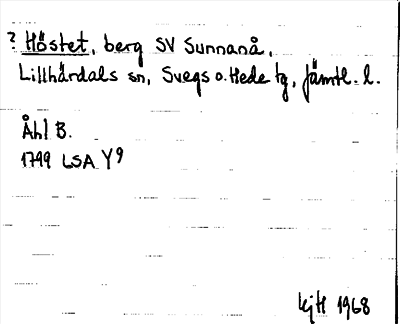 ? Höstet, berg SV Sunnanå,
Lillhärdals sn, Svegs o. Hede tg, Jämtl. l.
Åhl B.
1799 LSA Y9
kjH 1968